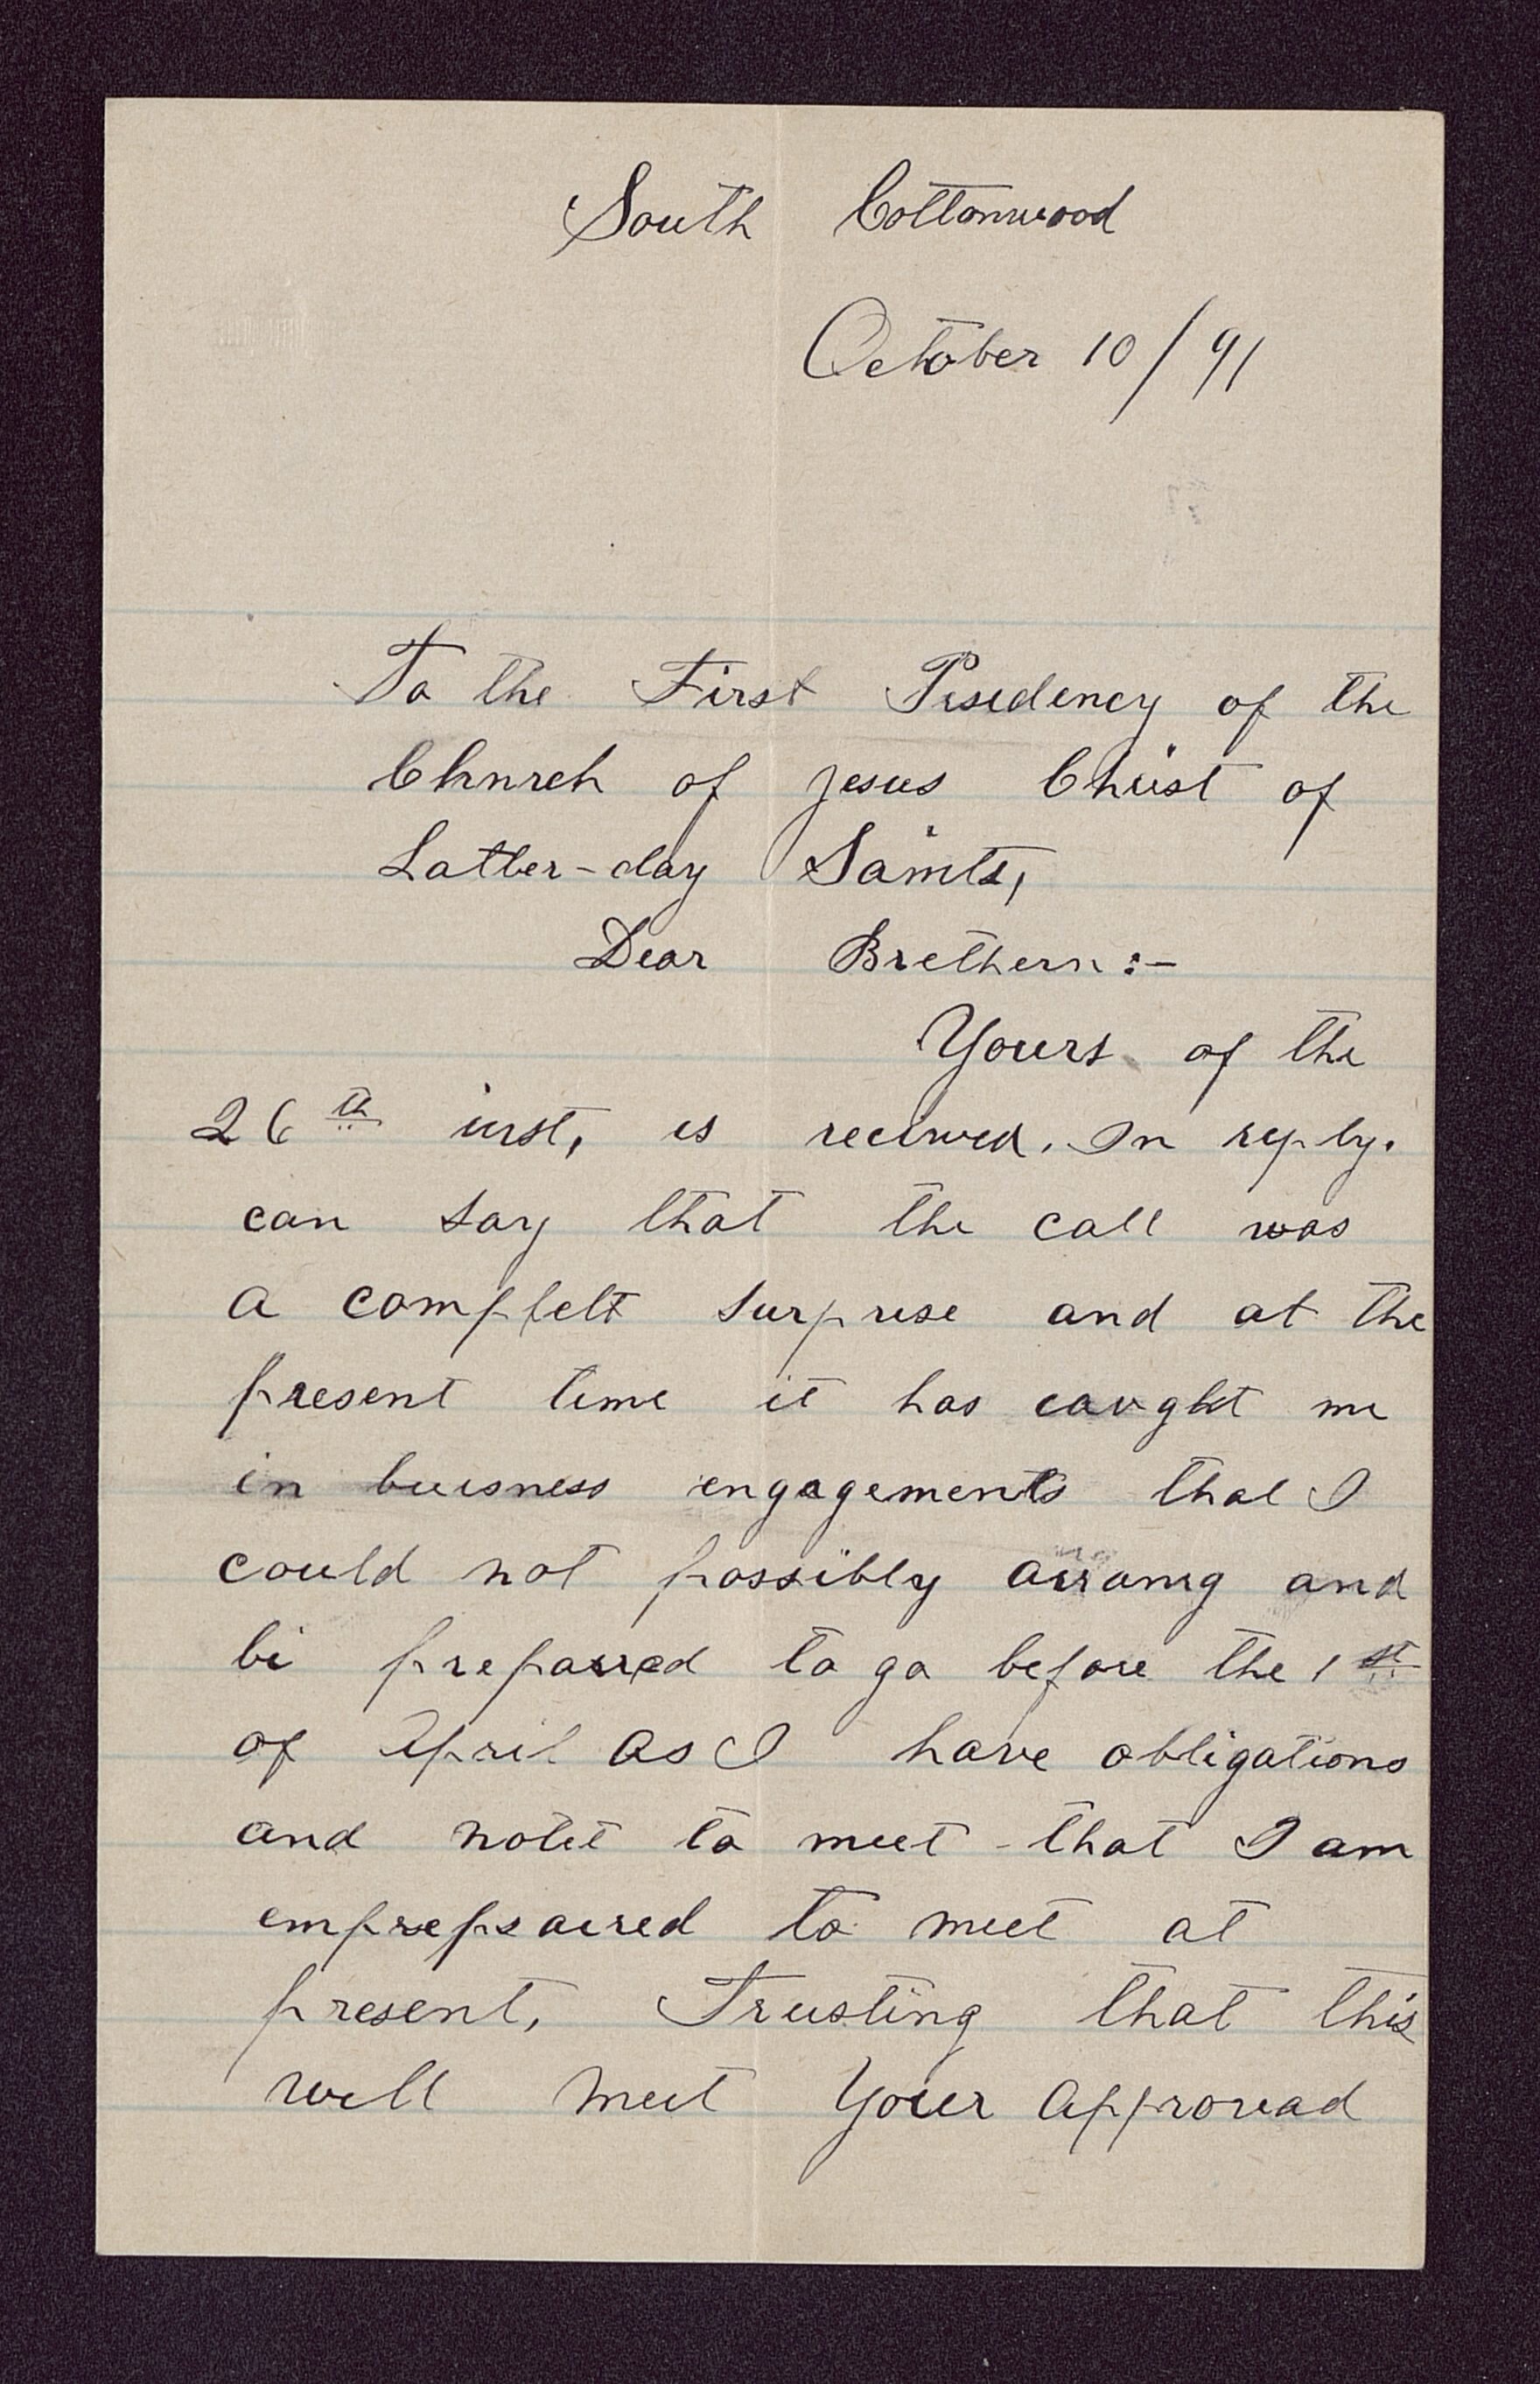 South Cottonwood
October 10/91
To the First Presidency of the
Church of Jesus Christ of
Latter-day Saints,
Dear Brethern:-
Yours of the
26th inst, is recieved. In reply.
can say that the call was
a complelt surprise and at the
present time it has caught me
in buisness engagements that I
could not possibly arrang and
be preparred to go before the 1st
of April as I have obligations
and notet to meet that I am
emprepsaired to meet at
present, Trusting that this
will meet your approvad